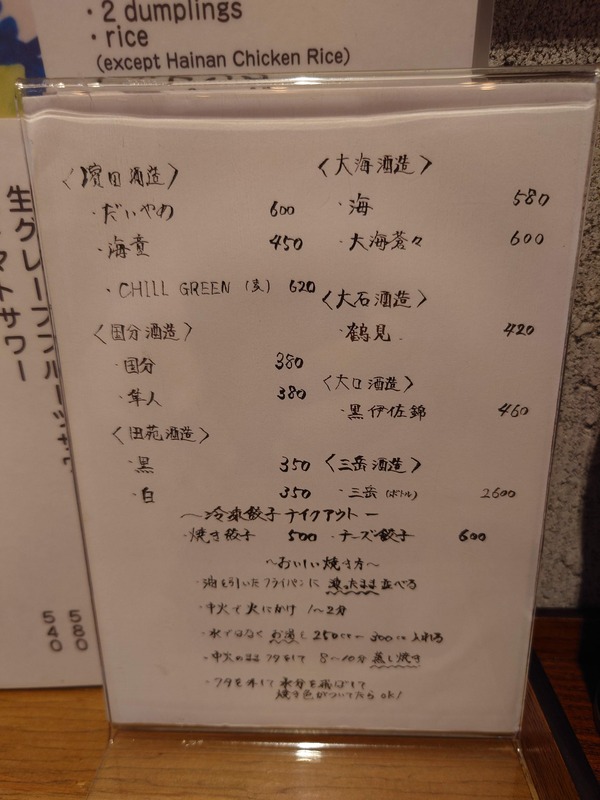 ・2 dumplings
・rice
(except Hainan Chicken Rice)
生グレープフルーツサワー
トマトサワー
580
540
〈濵田酒造〉
・だいやめ 600
・海童 450
・CHILL GREEN (麦) 620
〈国分酒造〉
・国分 380
・隼人 380
〈田苑酒造〉
・黒 350
・白 350
〈大海酒造〉
・海 580
・大海蒼々 600
〈大石酒造〉
・鶴見 420
〈大口酒造〉
・黒伊佐錦 460
〈三岳酒造〉
・三岳 (ボトル) 2600
〜冷凍餃子テイクアウト〜
・焼き餃子 500 ・チーズ餃子 600
〜おいしい焼き方〜
・油を引いたフライパンに 凍ったまま並べる
・中火で火にかけ 1〜2分
・水ではなくお湯を250cc〜300cc入れる
・中火のままフタをして 8〜10分 蒸し焼き
・フタを外して水分を飛ばして
焼き色がついてたらOK!